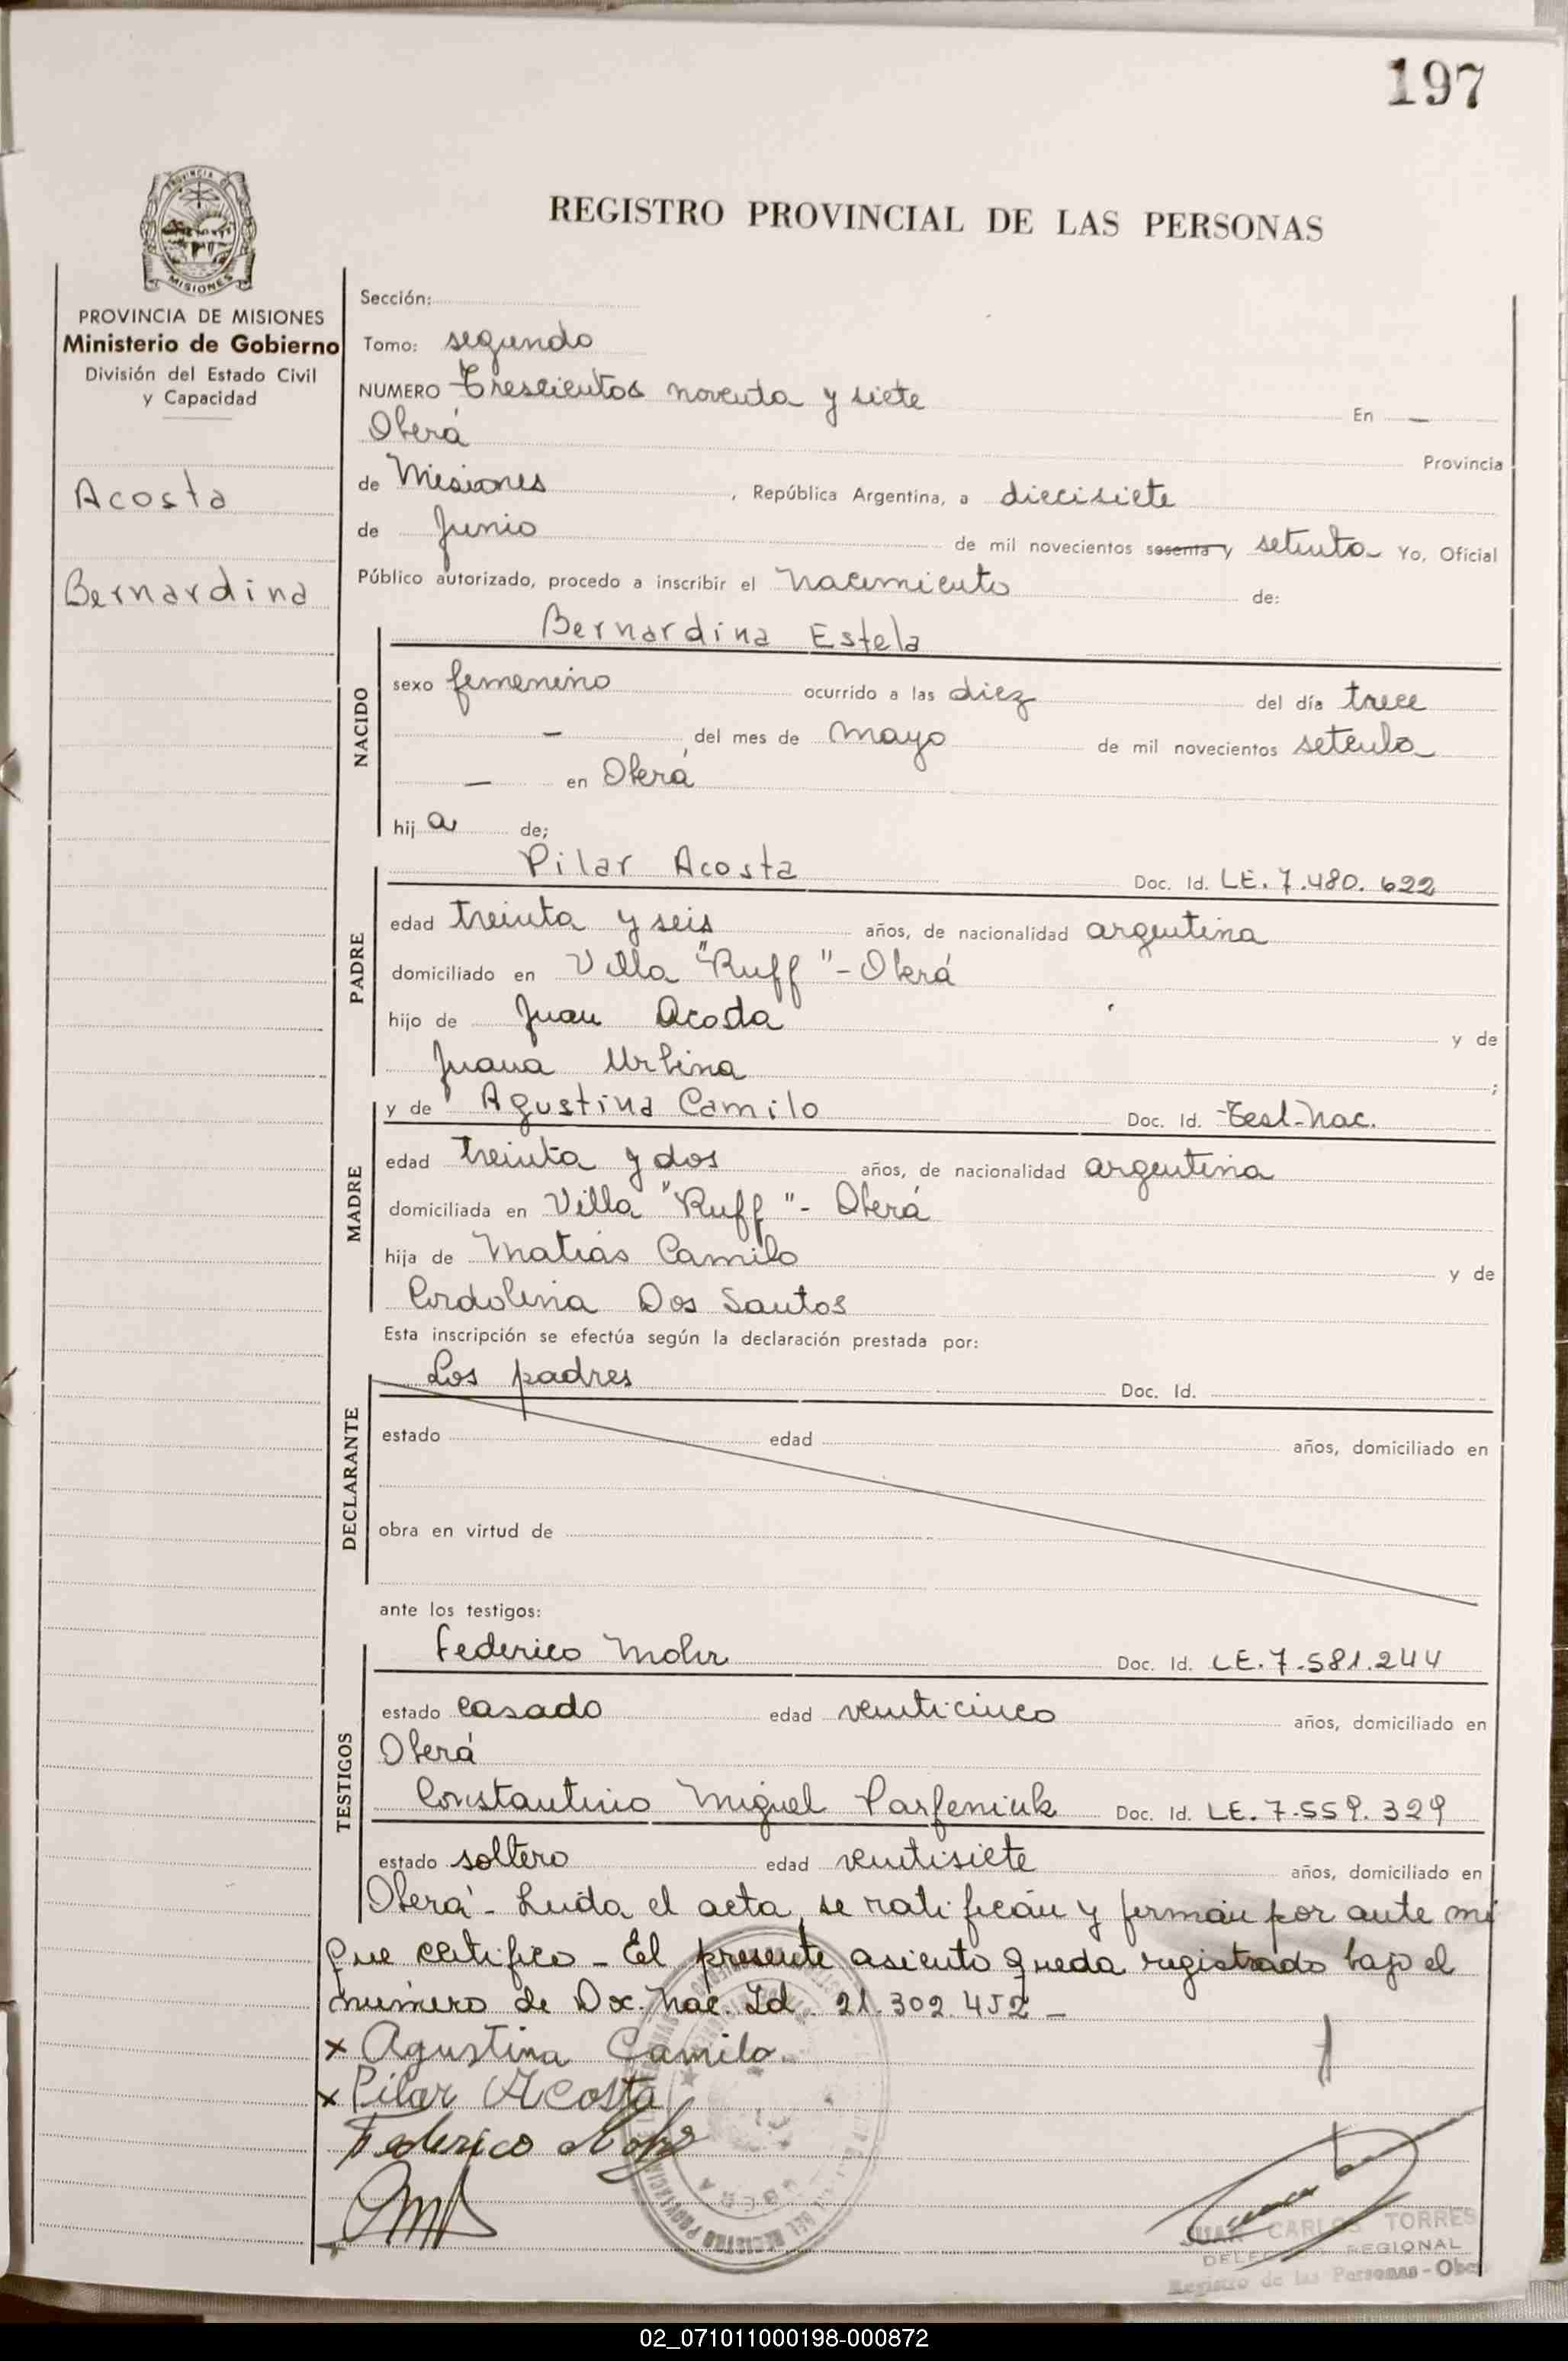 197
PROVINCIA
MISIONES
REGISTRO PROVINCIAL DE LAS PERSONAS
PROVINCIA DE MISIONES
Ministerio de Gobierno
División del Estado Civil
y Capacidad
Acosta
Bernardina
Sección:
Tomo: segundo
NUMERO Trescientos noventa y siete En —
Oberá Provincia
de Misiones, República Argentina, a diecisiete
de Junio de mil novecientos sesenta y setenta Yo, Oficial
Público autorizado, procedo a inscribir el nacimiento de:
NACIDO
Bernardina Estela
sexo femenino ocurrido a las diez del día trece
— del mes de mayo de mil novecientos setenta
— en Oberá
hij a de;
PADRE
Pilar Acosta Doc. Id. LE. 7.480.622
edad treinta y seis años, de nacionalidad argentina
domiciliado en Villa "Ruff" - Oberá
hijo de Juan Acosta y de
Juana Urbina ;
MADRE
y de Agustina Camilo Doc. Id. Test. Nac.
edad treinta y dos años, de nacionalidad argentina
domiciliada en Villa "Ruff" - Oberá
hija de Matias Camilo y de
Cordolina Dos Santos
Esta inscripción se efectúa según la declaración prestada por:
DECLARANTE
Los padres Doc. Id.
estado edad años, domiciliado en
obra en virtud de
ante los testigos:
TESTIGOS
Federico Mohr Doc. Id. LE. 7.581.244
estado casado edad veinticinco años, domiciliado en
Oberá
Constantino Miguel Parfeniuk Doc. Id. LE. 7.559.329
estado soltero edad veintisiete años, domiciliado en
Oberá - Leida el acta, se ratifican y firman por ante mi
que certifico - El presente asiento queda registrado bajo el
número de Doc. Nac. Id. 21.302.452 -
x Agustina Camilo.
x Pilar Acosta
Federico Mohr
JUAN CARLOS TORRES
DELEGADO REGIONAL
Registro de las Personas - Ober
02_071011000198-000872